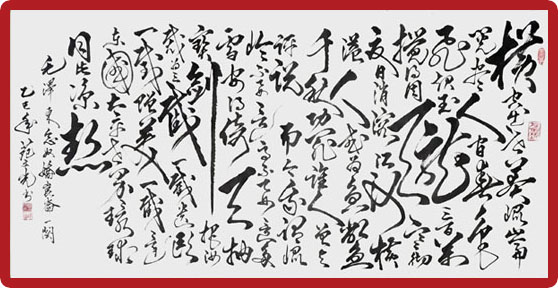 横空出世莽崑崙
阅尽人间春色
飞起玉龙三百万
搅得周天寒彻
夏日消溶江河横
溢人或为鱼鳖
千秋功罪谁人曾与
评说而今我谓崑
崙不要这高不要这多
雪安得倚天抽
宝剑把汝
裁为三截一截遗欧
一截赠美一截还
东國太平世界环球
同此凉热
毛泽东念奴娇崑崙一阕
乙巳年